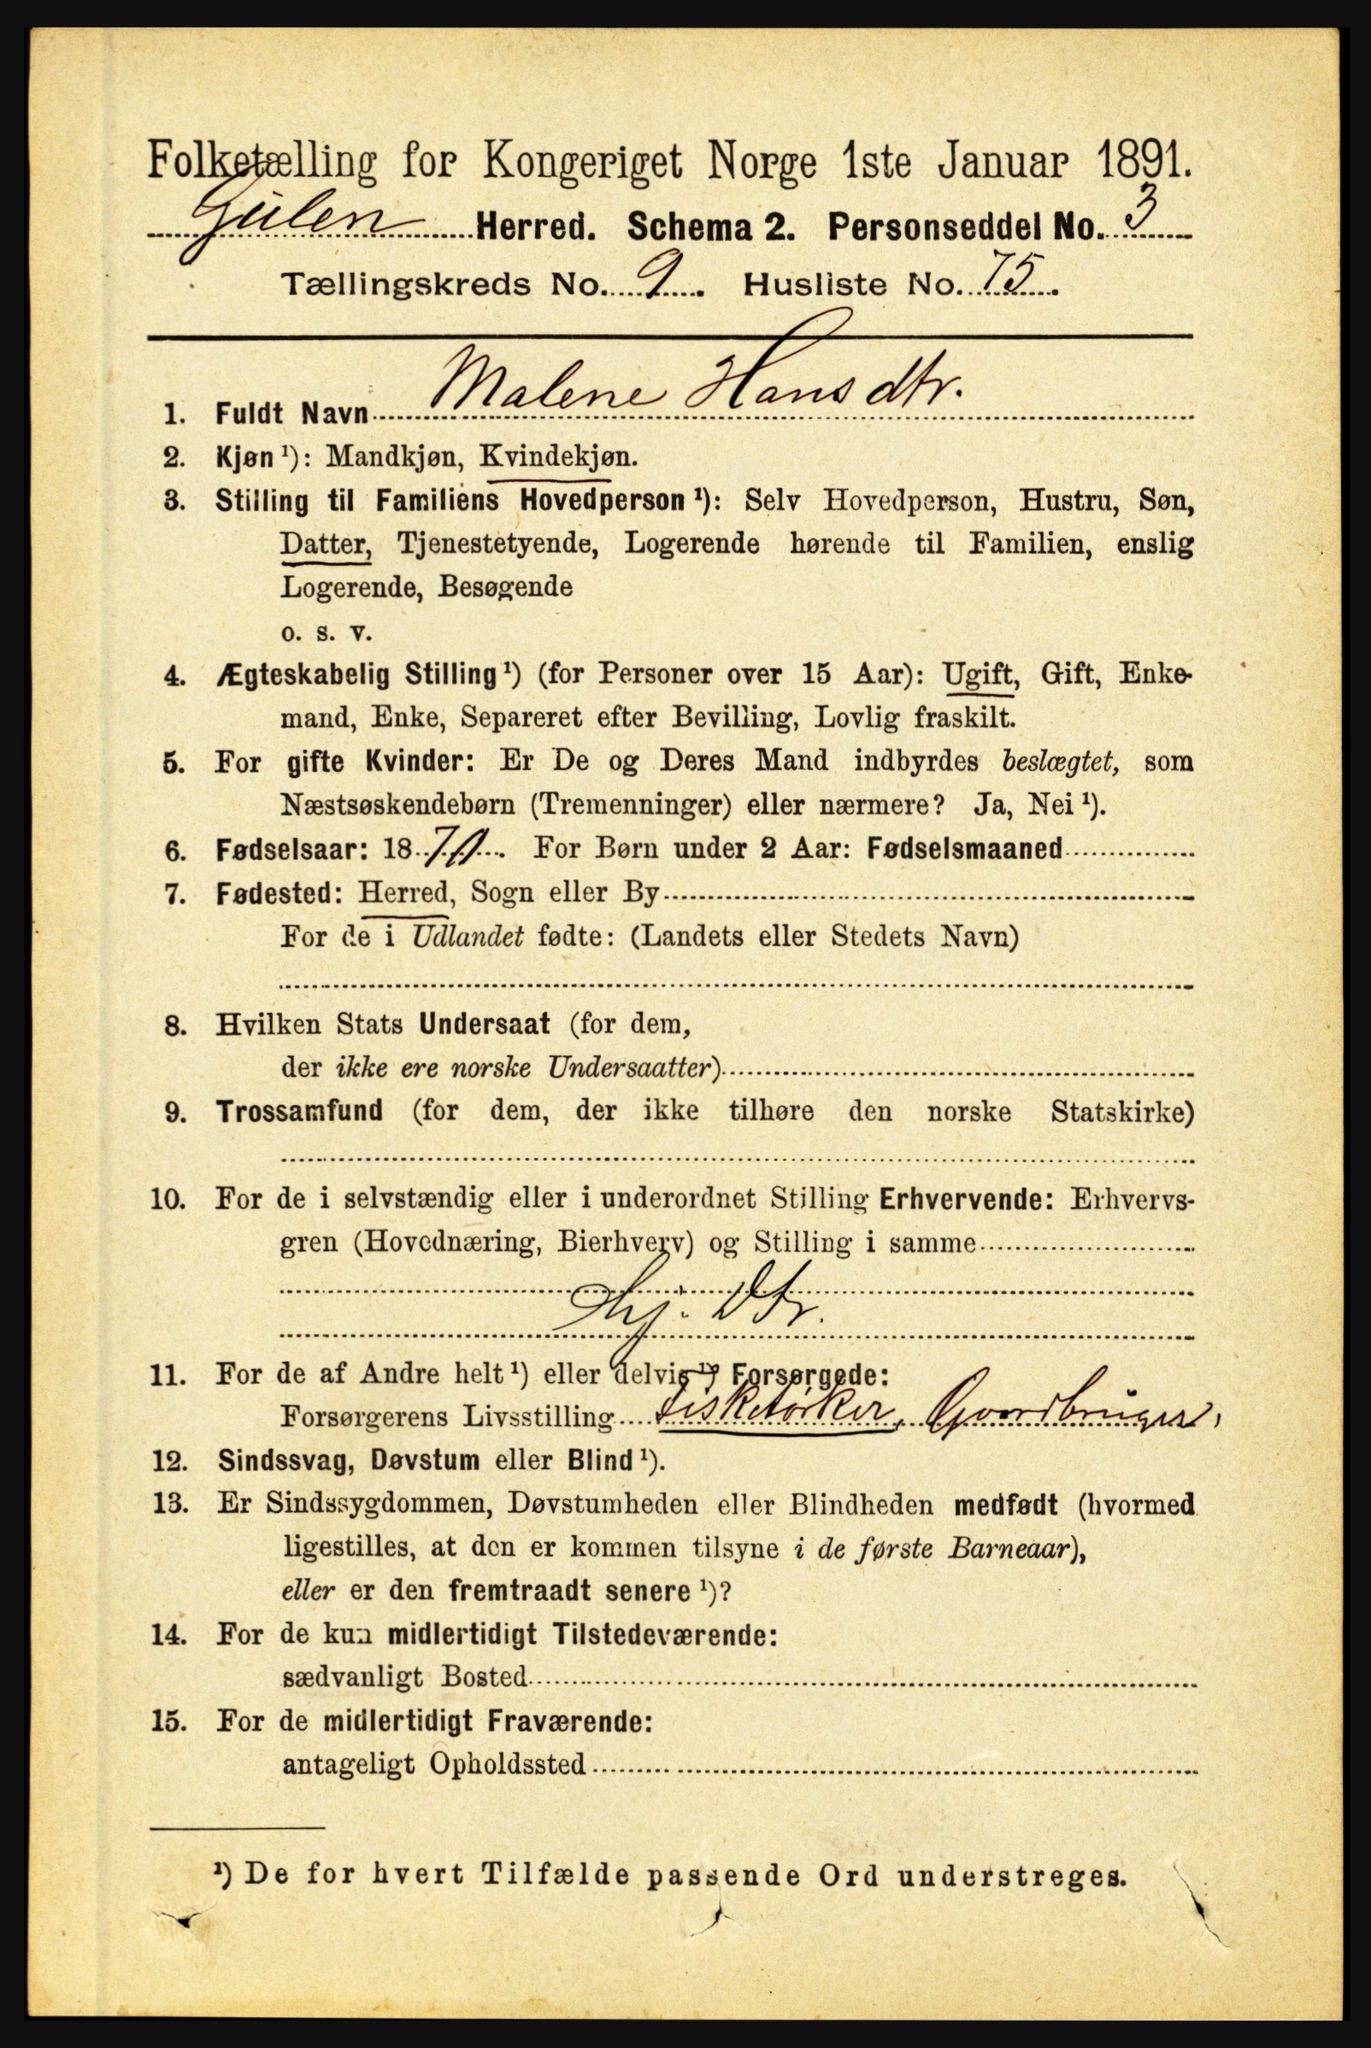 Folketælling for Kongeriget Norge 1ste Januar 1891.
Gulen Herred. Schema 2. Personseddel No. 3
Tællingskreds No. 9. Husliste No. 75.
1. Fuldt Navn Malene Hansdtr.
2. Kjøn ¹): Mandkjøn, Kvindekjøn.
3. Stilling til Familiens Hovedperson ¹): Selv Hovedperson, Hustru, Søn,
Datter, Tjenestetyende, Logerende hørende til Familien, enslig
Logerende, Besøgende
o. s. v.
4. Ægteskabelig Stilling ¹) (for Personer over 15 Aar): Ugift, Gift, Enke-
mand, Enke, Separeret efter Bevilling, Lovlig fraskilt.
5. For gifte Kvinder: Er De og Deres Mand indbyrdes beslægtet, som
Næstsøskendebørn (Tremenninger) eller nærmere? Ja, Nei ¹).
6. Fødselsaar: 1870. For Børn under 2 Aar: Fødselsmaaned
7. Fødested: Herred, Sogn eller By
For de i Udlandet fødte: (Landets eller Stedets Navn)
8. Hvilken Stats Undersaat (for dem,
der ikke ere norske Undersaatter)
9. Trossamfund (for dem, der ikke tilhøre den norske Statskirke)
10. For de i selvstændig eller i underordnet Stilling Erhvervende: Erhvervs-
gren (Hovednæring, Bierhverv) og Stilling i samme
Hj. Dtr.
11. For de af Andre helt ¹) eller delvis ¹) Forsørgede:
Forsørgerens Livsstilling Fisketørker, Gaardbruger,
12. Sindssvag, Døvstum eller Blind ¹).
13. Er Sindssygdommen, Døvstumheden eller Blindheden medfødt (hvormed
ligestilles, at den er kommen tilsyne i de første Barneaar),
eller er den fremtraadt senere ¹)?
14. For de kun midlertidigt Tilstedeværende:
sædvanligt Bosted
15. For de midlertidigt Fraværende:
antageligt Opholdssted
¹) De for hvert Tilfælde passende Ord understreges.